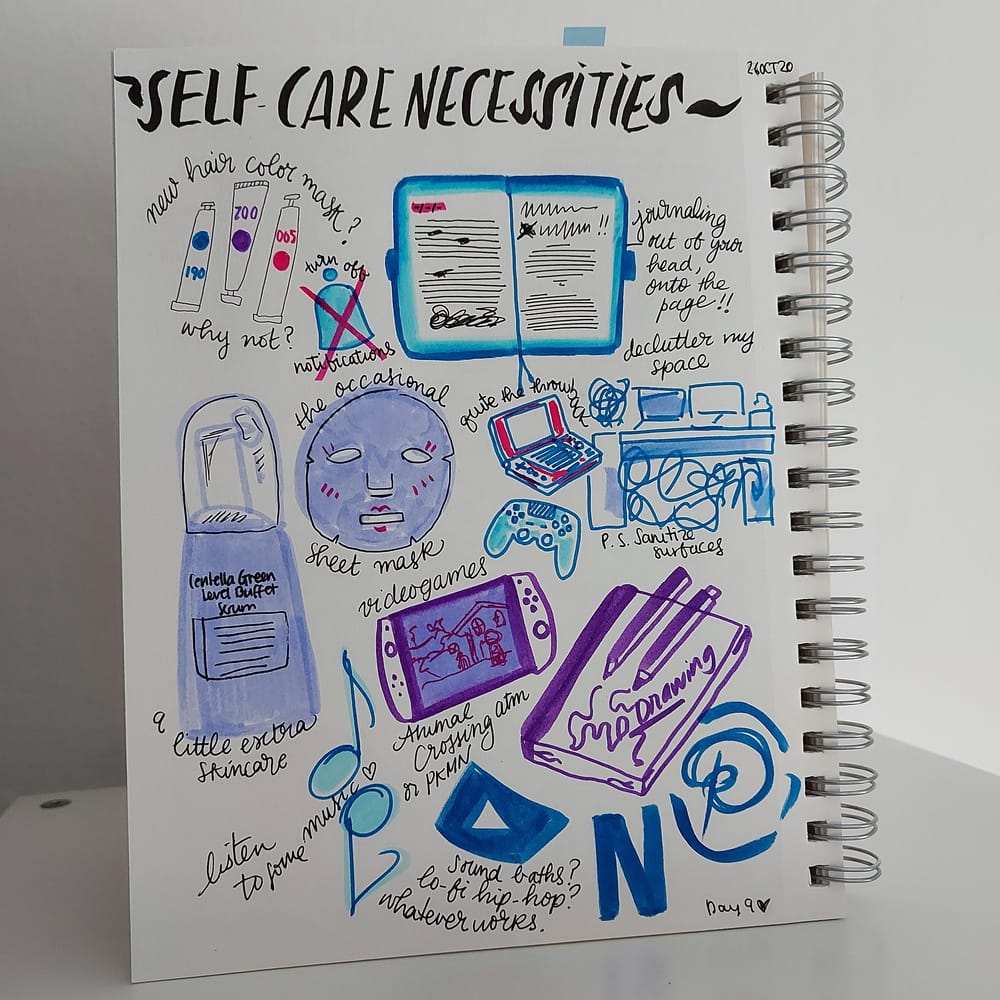 ~SELF-CARE NECESSITIES~
26OCT20
new hair color mask?
190
200
005
why not?
turn off
notifications
!!
journaling
out of your
head,
onto the
page!!
declutter my
space
P.S. Sanitize
surfaces
the occasional
sheet mask
quite the throwback
videogames
Animal
Crossing atm
or PKMN
Centella Green
Level Buffet
Serum
a
little exctra
skincare
MO DRawing
listen
to some music ♡
Sound baths?
lo-fi hip-hop?
whatever works.
N
P
Day 9♥